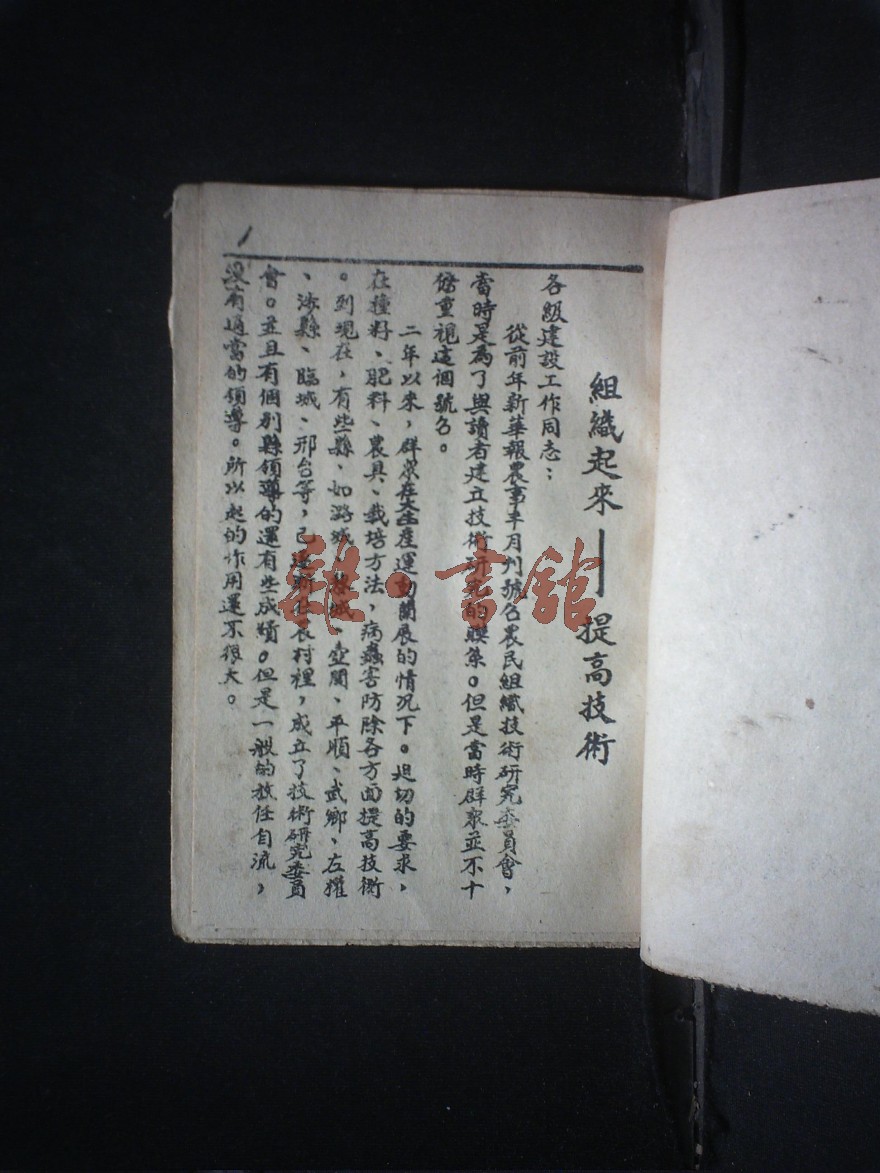 組織起來——提高技術
各級建設工作同志：
從前年新華報農事半月刊號名農民組織技術研究委員會，
當時是為了與讀者建立技術研究的聯系。但是當時群衆並不十
條重視這個號名。
二年以來，群衆在大生產運動開展的情况下。迫切的要求，
在種籽、肥料、農具、栽培方法，病蟲害防除各方面提高技術
。到現在，有些縣、如潞城、黎城、壺関、平順、武鄉、左權
、涉縣、臨城、邢台等，已逐漸在農村裡，成立了技術研究委員
會。並且有個别縣領導的還有些成績。但是一般的放任自流，
沒有適當的領導。所以起的作用還不很大。
1
雜·書館